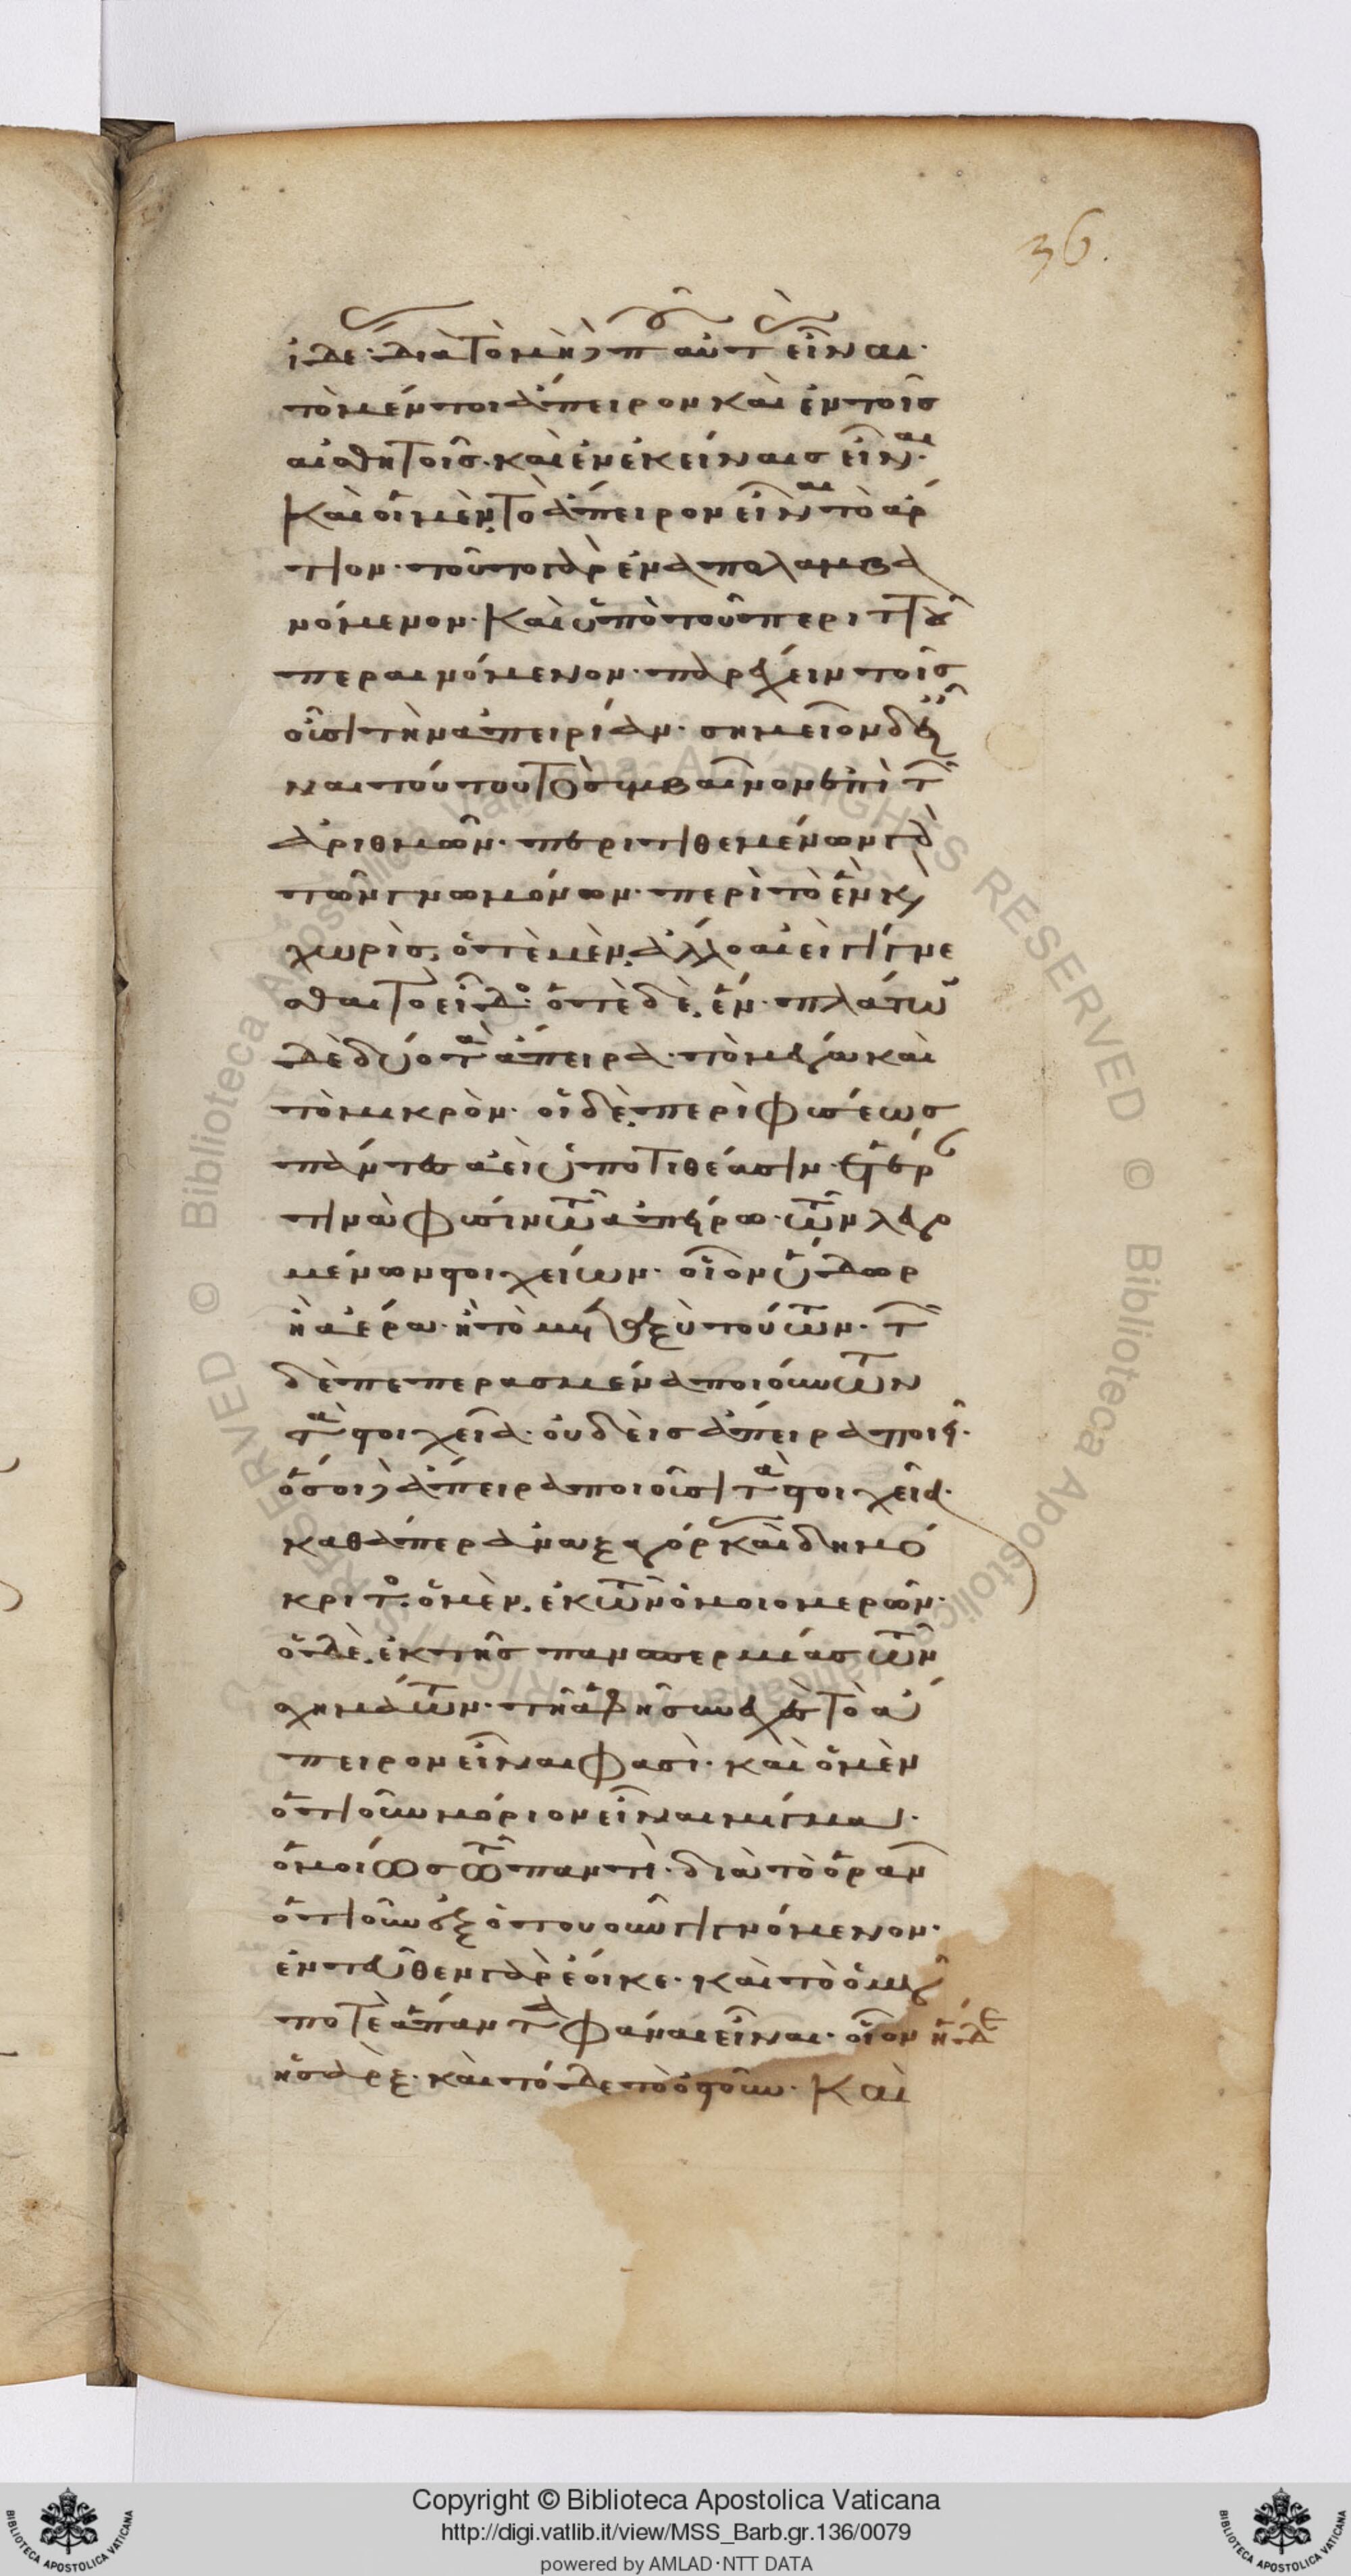 36.
ἰδέας διὰ τὸ μηδὲ ποῦ αὐτὰς εἶναι·
τὸ μέντοι ἄπειρον καὶ ἐν τοῖς
αἰσθητοῖς· καὶ ἐν ἐκείναις εἶναι·
Καὶ οἱ μὲν τὸ ἄπειρον εἶναι τὸ ἄρ
τιον· τοῦτο γὰρ ἐναπολαμβα
νόμενον· Καὶ ὑπὸ τοῦ περιττοῦ
περαινόμενον· παρέχειν τοῖς
οὖσι τὴν ἀπειρίαν· σημεῖον δ' εἶ
ναι τούτου τὸ συμβαῖνον ἐπὶ τῶν
ἀριθμῶν· περιτιθεμένων γὰρ
τῶν γνωμόνων· περὶ τὸ ἓν καὶ
χωρίς, ὁτὲ μὲν ἄλλο ἀεὶ γίγνε
σθαι τὸ εἶδος· ὁτὲ δὲ, ἕν· πλάτων
δὲ δύο τὰ ἄπειρα· τὸ μέγα καὶ
τὸ μικρόν· οἱ δὲ περὶ φύσεως
πάντες ἀεὶ ὑποτιθέασιν ἑτέρ
τινα φύσιν τῶ ἀπείρω· τῶν λεγο
μένων στοιχείων· οἷον ὕδωρ
ἢ ἀέρα· ἢ τὸ μεταξὺ τούτων· τῶν
δὲ πεπερασμένα ποιούντων
τὰ στοιχεῖα· οὐδεὶς ἄπειρα ποιεῖ·
ὅσοι δὲ ἄπειρα ποιοῦσι τὰ στοιχεῖα·
καθάπερ ἀναξαγόρας καὶ δημό
κριτος· ὁ μὲν, ἐκ τῶν ὁμοιομερῶν·
ὁ δὲ, ἐκ τῆς πανσπερμίας τῶν
σχημάτων· τῆ ἁφῆ συνεχὲς τὸ ἄ
πειρον εἶναι φασί· καὶ ὁ μὲν
ὁτιοῦν μόριον εἶναι μίγμα·
ὁμοίως τῶ παντί· διὰ τὸ ὁρᾶν
ὁτιοῦν ἐξ ὁτουοῦν γιγνόμενον·
ἐντεῦθεν γὰρ ἔοικε· καὶ τὸ ὁμοῦ
ποτὲ ἅπαντα φάναι εἶναι· οἷον ἥδε
ἡ σάρξ· καὶ τόδε τὸ ὀστοῦν· Καὶ
Copyright © Biblioteca Apostolica Vaticana
http://digi.vatlib.it/view/MSS_Barb.gr.136/0079
powered by AMLAD·NTT DATA